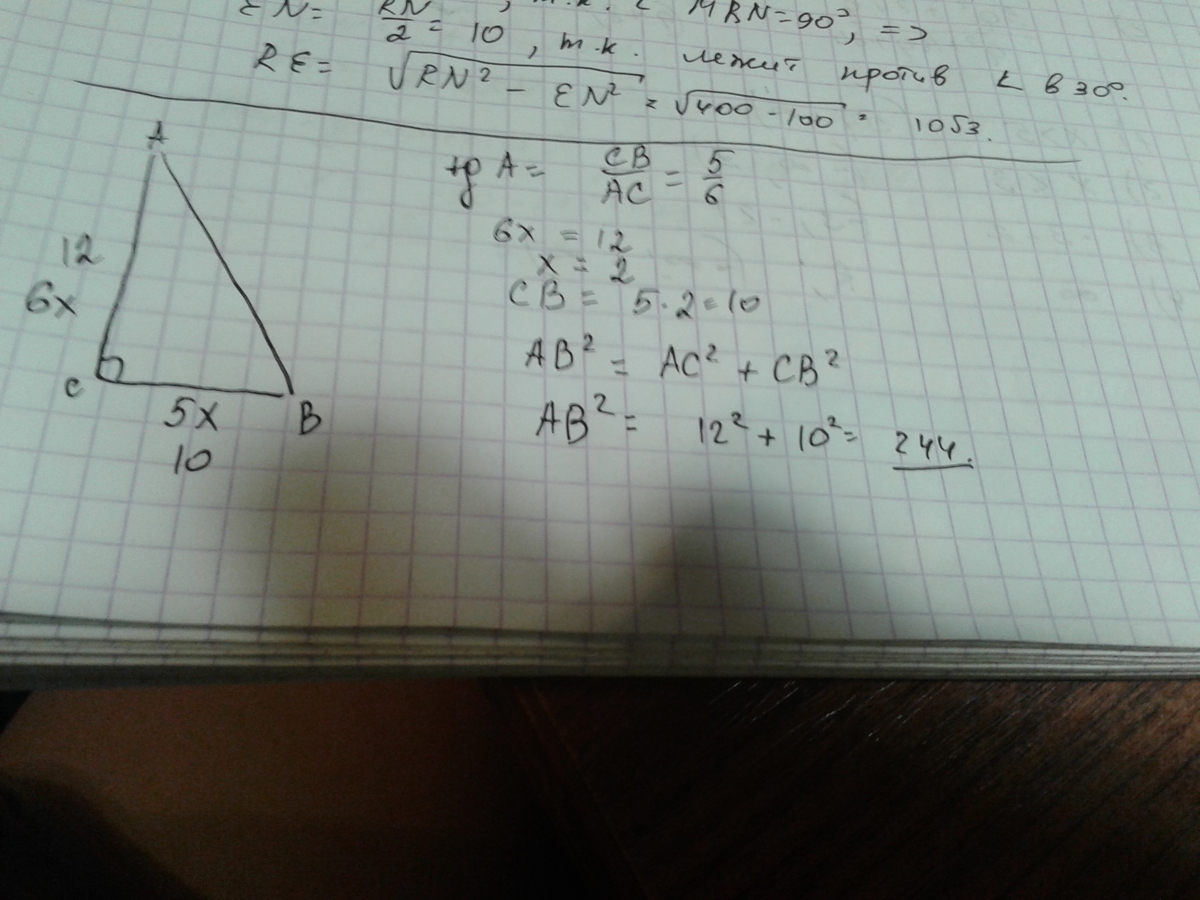 EN = RN/2 = 10, т.к. ∠ MRN = 90°, =>
RE = √RN² - EN² = √400 - 100 = 10√3.
, т.к. лежит против ∠ в 30°.
A
12
6x
C
5x
B
10
tg A = CB/AC = 5/6
6x = 12
x = 2
CB = 5 · 2 = 10
AB² = AC² + CB²
AB² = 12² + 10² = 244.